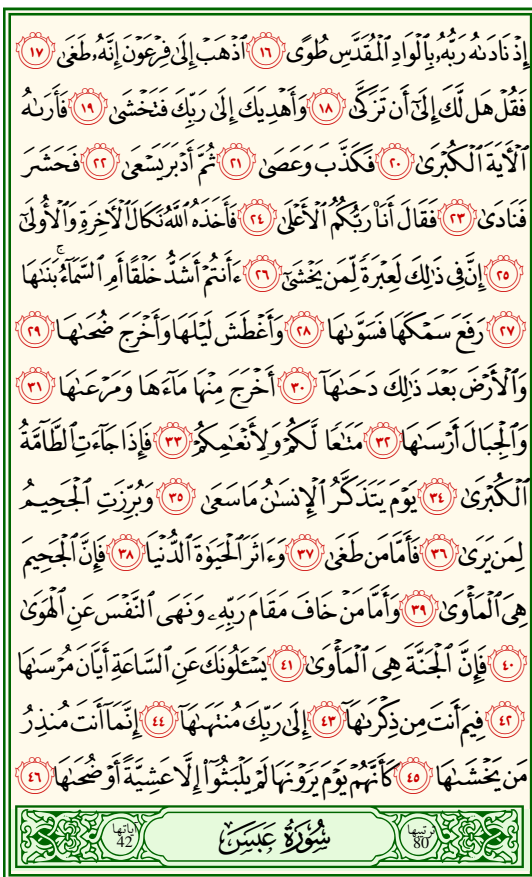 إِذْ نَادَىٰهُ رَبُّهُۥ بِٱلْوَادِ ٱلْمُقَدَّسِ طُوًى ١٦ ٱذْهَبْ إِلَىٰ فِرْعَوْنَ إِنَّهُۥ طَغَىٰ ١٧
فَقُلْ هَل لَّكَ إِلَىٰٓ أَن تَزَكَّىٰ ١٨ وَأَهْدِيَكَ إِلَىٰ رَبِّكَ فَتَخْشَىٰ ١٩ فَأَرَىٰهُ
ٱلْأَيَةَ ٱلْكُبْرَىٰ ٢٠ فَكَذَّبَ وَعَصَىٰ ٢١ ثُمَّ أَدْبَرَ يَسْعَىٰ ٢٢ فَحَشَرَ
فَنَادَىٰ ٢٣ فَقَالَ أَنَا۠ رَبُّكُمُ ٱلْأَعْلَىٰ ٢٤ فَأَخَذَهُ ٱللَّهُ نَكَالَ ٱلْأَخِرَةِ وَٱلْأُولَىٰٓ
٢٥ إِنَّ فِى ذَٰلِكَ لَعِبْرَةً لِّمَن يَخْشَىٰٓ ٢٦ ءَأَنتُمْ أَشَدُّ خَلْقًا أَمِ ٱلسَّمَآءُ ۚ بَنَىٰهَا
٢٧ رَفَعَ سَمْكَهَا فَسَوَّىٰهَا ٢٨ وَأَغْطَشَ لَيْلَهَا وَأَخْرَجَ ضُحَىٰهَا ٢٩
وَٱلْأَرْضَ بَعْدَ ذَٰلِكَ دَحَىٰهَآ ٣٠ أَخْرَجَ مِنْهَا مَآءَهَا وَمَرْعَىٰهَا ٣١
وَٱلْجِبَالَ أَرْسَىٰهَا ٣٢ مَتَٰعًا لَّكُمْ وَلِأَنْعَٰمِكُمْ ٣٣ فَإِذَا جَآءَتِ ٱلطَّآمَّةُ
ٱلْكُبْرَىٰ ٣٤ يَوْمَ يَتَذَكَّرُ ٱلْإِنسَٰنُ مَا سَعَىٰ ٣٥ وَبُرِّزَتِ ٱلْجَحِيمُ
لِمَن يَرَىٰ ٣٦ فَأَمَّا مَن طَغَىٰ ٣٧ وَءَاثَرَ ٱلْحَيَوٰةَ ٱلدُّنْيَا ٣٨ فَإِنَّ ٱلْجَحِيمَ
هِىَ ٱلْمَأْوَىٰ ٣٩ وَأَمَّا مَنْ خَافَ مَقَامَ رَبِّهِۦ وَنَهَى ٱلنَّفْسَ عَنِ ٱلْهَوَىٰ
٤٠ فَإِنَّ ٱلْجَنَّةَ هِىَ ٱلْمَأْوَىٰ ٤١ يَسْـَٔلُونَكَ عَنِ ٱلسَّاعَةِ أَيَّانَ مُرْسَىٰهَا
٤٢ فِيمَ أَنتَ مِن ذِكْرَىٰهَآ ٤٣ إِلَىٰ رَبِّكَ مُنتَهَىٰهَآ ٤٤ إِنَّمَآ أَنتَ مُنذِرُ
مَن يَخْشَىٰهَا ٤٥ كَأَنَّهُمْ يَوْمَ يَرَوْنَهَا لَمْ يَلْبَثُوٓا۟ إِلَّا عَشِيَّةً أَوْ ضُحَىٰهَا ٤٦
ترتيبها 80 سُورَةُ عَبَسَ آياتها 42